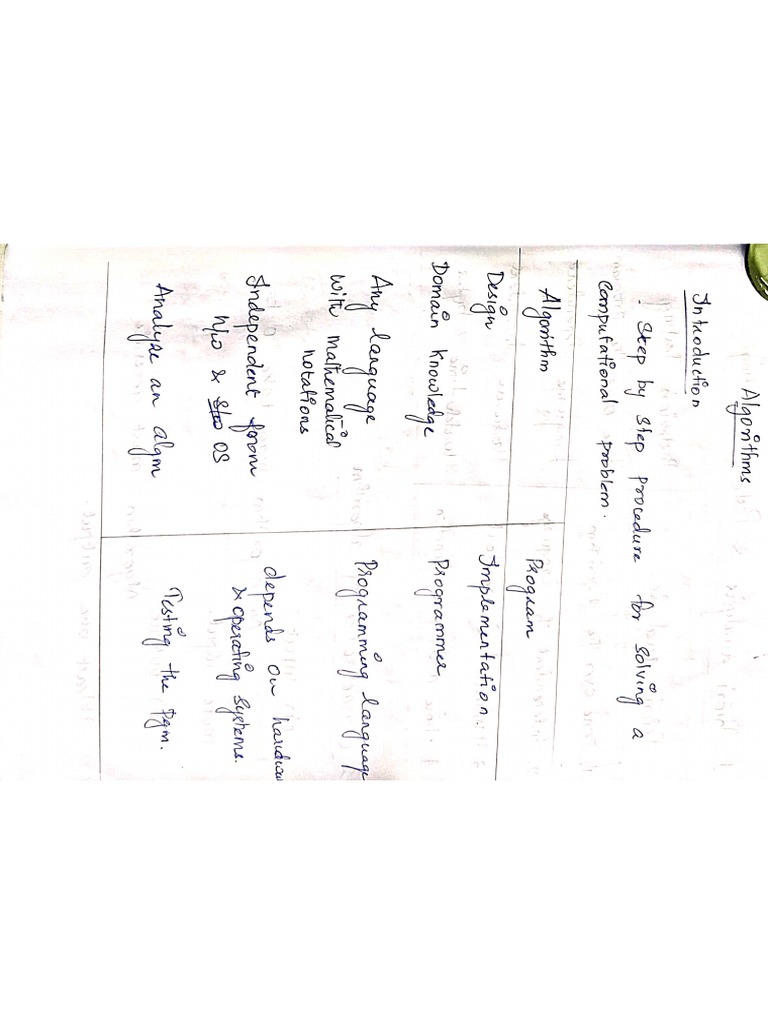 Algorithms
Introduction
. Step by Step procedure for solving a
computational problem.
Algorithm Program
Design Implementation.
Domain Knowledge Programmer
Any language Programming language
with mathematical
notations
Independent from depends on
H/w & OS & operating systems.
Analyse an algm Testing the pgm.